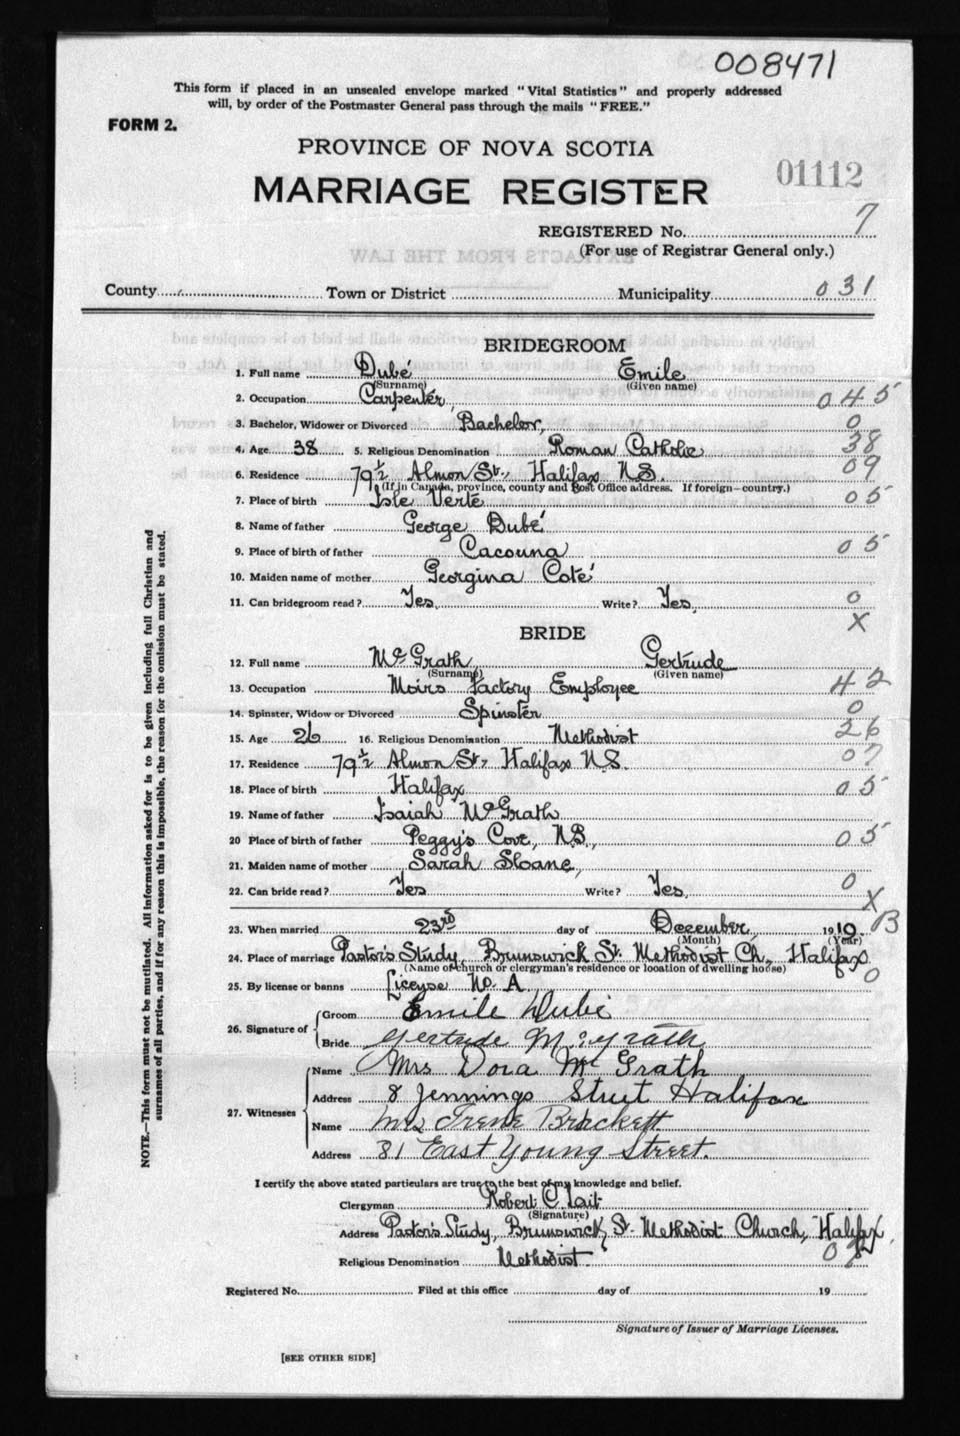 008471
This form if placed in an unsealed envelope marked "Vital Statistics" and properly addressed
will, by order of the Postmaster General pass through the mails "FREE."
FORM 2.
PROVINCE OF NOVA SCOTIA
01112
MARRIAGE REGISTER
REGISTERED No. 7
(For use of Registrar General only.)
EXTRACTS FROM THE LAW
County Town or District Municipality 031
BRIDEGROOM
1. Full name Dubé Emile
(Surname) (Given name)
2. Occupation Carpenter, 045
3. Bachelor, Widower or Divorced Bachelor, 0
4. Age 38 5. Religious Denomination Roman Catholic 38
6. Residence 79½ Almon St., Halifax N.S. 09
(If in Canada, province, county and Post Office address. If foreign—country.)
7. Place of birth Isle Verte 05
8. Name of father George Dubé
9. Place of birth of father Cacouna 05
10. Maiden name of mother Georgina Coté
11. Can bridegroom read? Yes, Write? Yes, 0
X
BRIDE
12. Full name McGrath Gertrude
(Surname) (Given name)
13. Occupation Moirs Factory Employee 42
14. Spinster, Widow or Divorced Spinster 0
15. Age 26 16. Religious Denomination Methodist 26
17. Residence 79½ Almon St., Halifax N.S. 07
18. Place of birth Halifax 05
19. Name of father Isaiah McGrath
20 Place of birth of father Peggy's Cove, N.S., 05
21. Maiden name of mother Sarah Sloane,
22. Can bride read? Yes Write? Yes, 0
X
23. When married 23rd day of December 1919. B
(Month) (Year)
24. Place of marriage Pastor's Study, Brunswick St. Methodist Ch., Halifax
(Name of church or clergyman's residence or location of dwelling house) 0
25. By license or banns License No. A
26. Signature of Groom Emile Dubé
Bride Gertrude McGrath
27. Witnesses Name Mrs Dora McGrath
Address 8 Jennings Street Halifax
Name Mrs Irene Brackett
Address 81 East Young Street.
I certify the above stated particulars are true to the best of my knowledge and belief.
Clergyman Robert C. Tait
(Signature)
Address Pastor's Study, Brunswick St. Methodist Church, Halifax,
Religious Denomination Methodist. 07
Registered No. Filed at this office day of 19
Signature of Issuer of Marriage Licenses.
[SEE OTHER SIDE]
NOTE.—This form must not be mutilated. All information asked for is to be given including full Christian and
surnames of all parties, and if for any reason this is impossible, the reason for the omission must be stated.